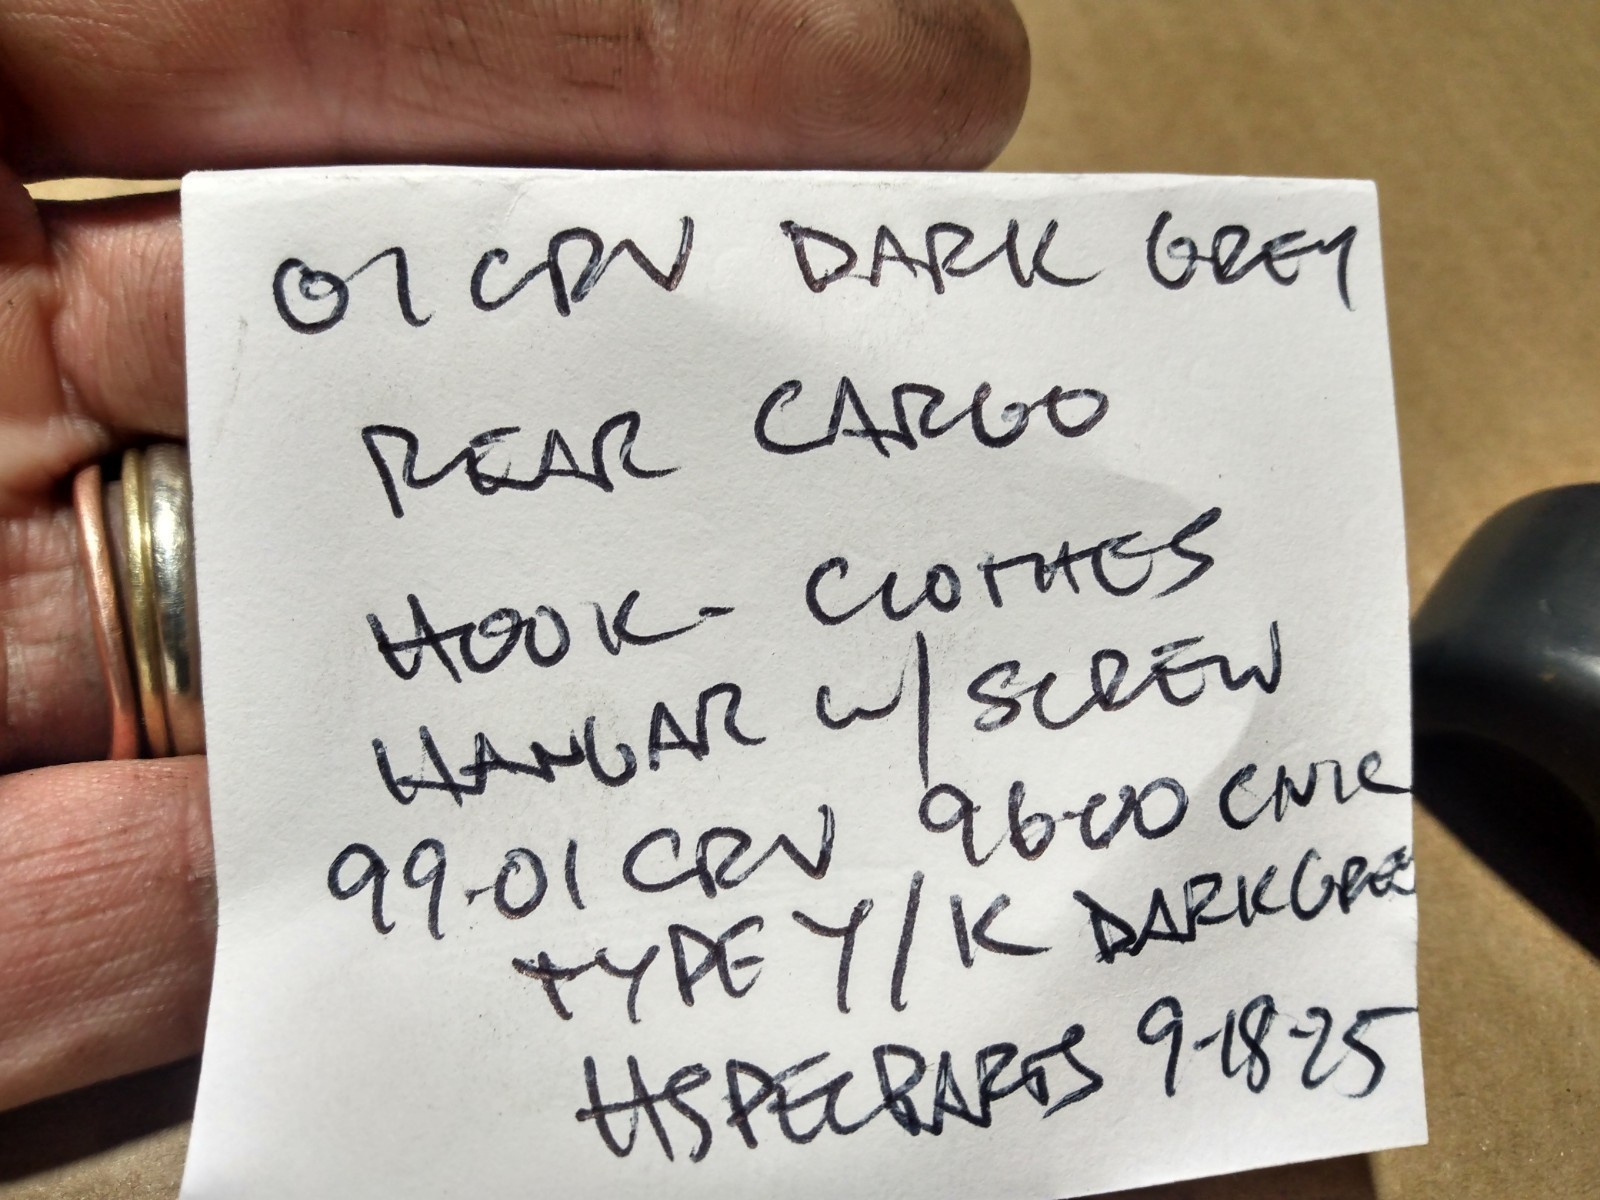 01 CRV DARK GREY
REAR CARGO
HOOK- CLOTHES
HANGAR W/ SCREW
99-01 CRV 96-00 CIVIC
TYPE Y/K DARK GREY
HSPECPARTS 9-18-25